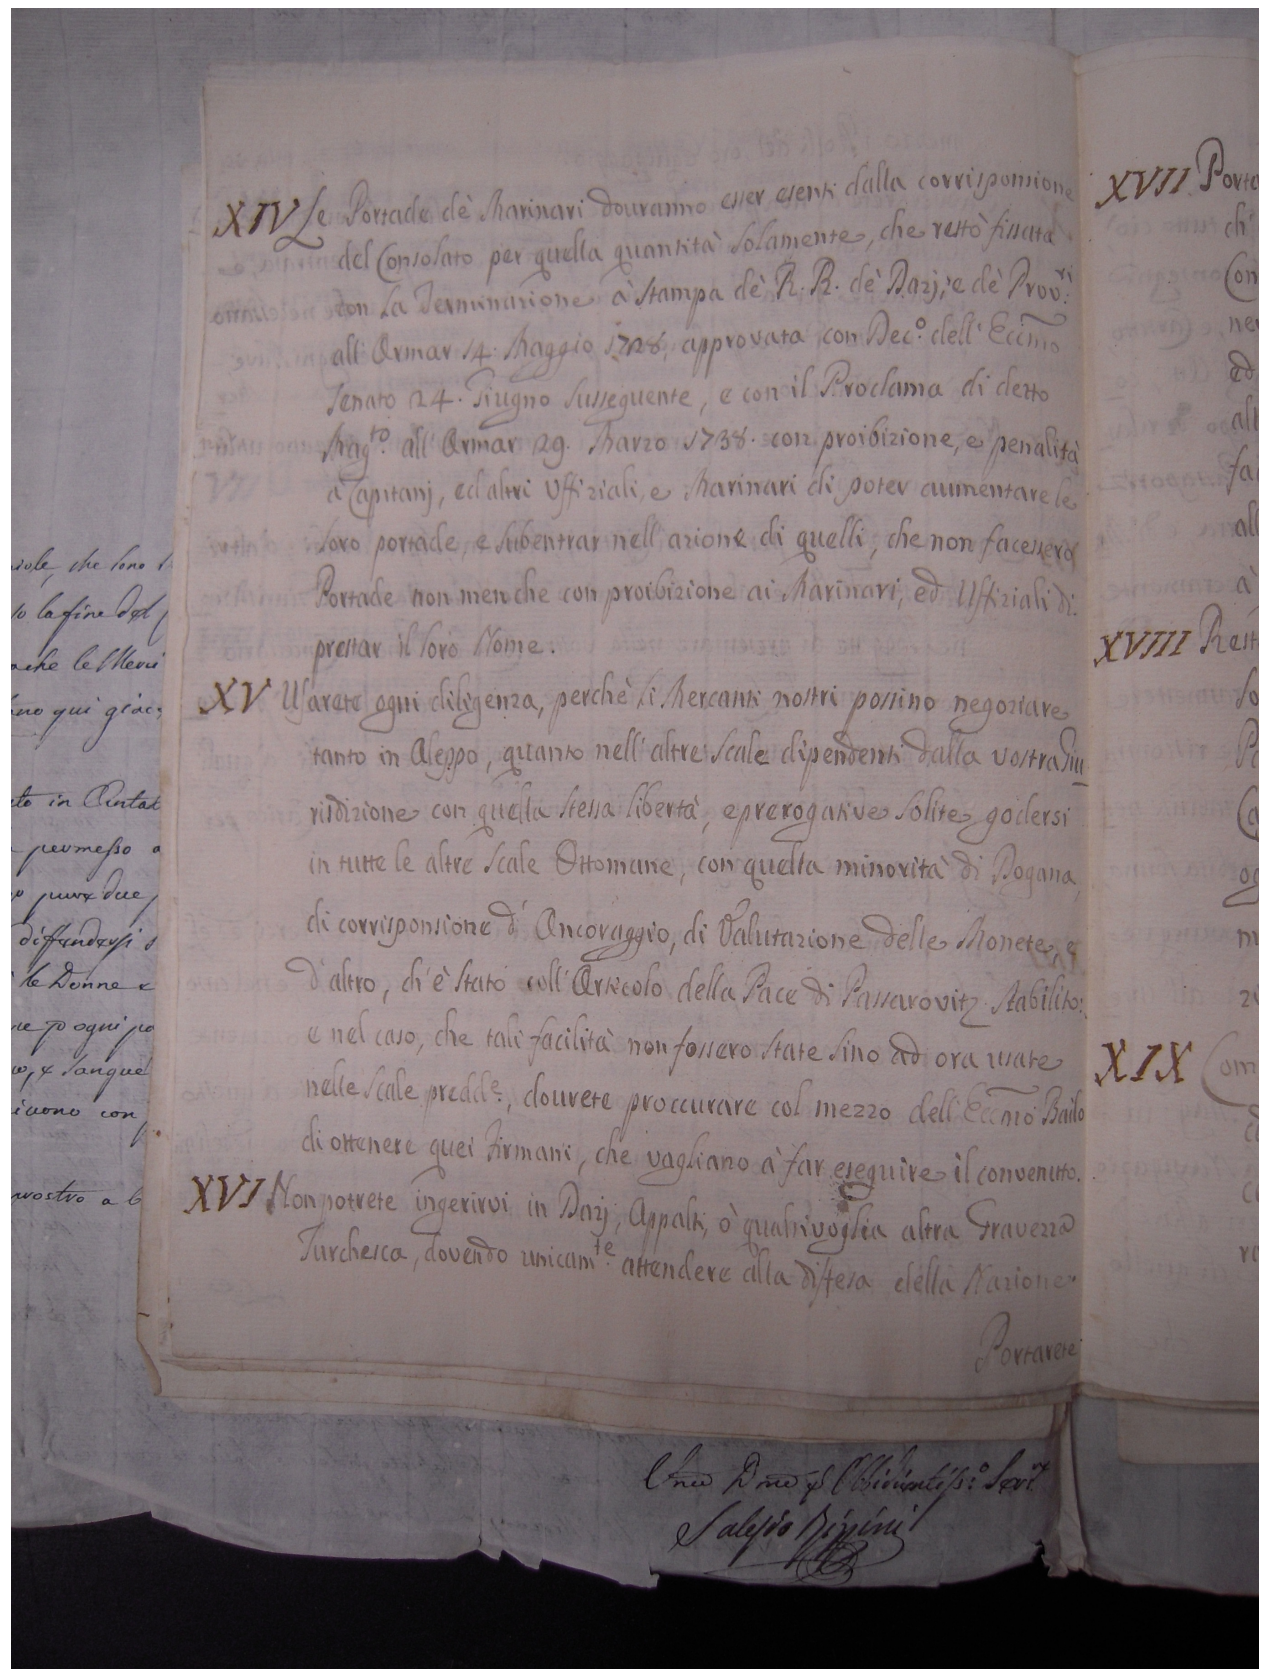 XIV Le Portade dè Marinari douranno esser esenti dalla corrisponsione
del Consolato per quella quantità solamente, che restò fissata
con la Terminazione à stampa dè R. R. dè Dazj, e dè Prov.ri
all' Armar 14. Maggio 1728, approvata con Dec.o dell' Eccmo
Senato 24. Giugno susseguente, e con il Proclama di detto
Mag.to all' Armar 29. Marzo 1738. con proibizione, e penalità
à Capitanj, ed altri Uffiziali, e Marinari di poter aumentare le
loro portade, e subentrar nell' azione di quelli, che non facessero
Portade non men che con proibizione ai Marinari, ed Uffiziali di
prestar il loro Nome.
XV Usarete ogni diligenza, perchè li Mercanti nostri possino negoziare
tanto in Aleppo, quanto nell' altre Scale dipendenti dalla vostra Giu
risdizione con quella stessa libertà, e prerogative solite godersi
in tutte le altre Scale Ottomane, con quella minorità di Dogana,
di corrisponsione d' Ancoraggio, di Valutazione delle Monete, e
d' altro, ch' è stato coll' Articolo della Pace di Passarovitz stabilito:
e nel caso, che tali facilità non fossero state sino ad ora usate
nelle Scale predd.e, dourete proccurare col mezzo dell' Eccmo Bailo
di ottenere quei Firmani, che vagliano à far eseguire il convenuto.
XVI Non potrete ingerirvi in Dazj, Appalti, ò qualsivoglia altra Gravezza
Turchesca, dovendo unicam.te attendere alla diffesa della Nazione
Portarete
XVII
ch'
XVIII
à
XIX
che sono
lo la fine del
che le Merci
no qui
to in
permesso a
pure due
diffendersi
le Donne e
ogni
sangue
con
nostro a